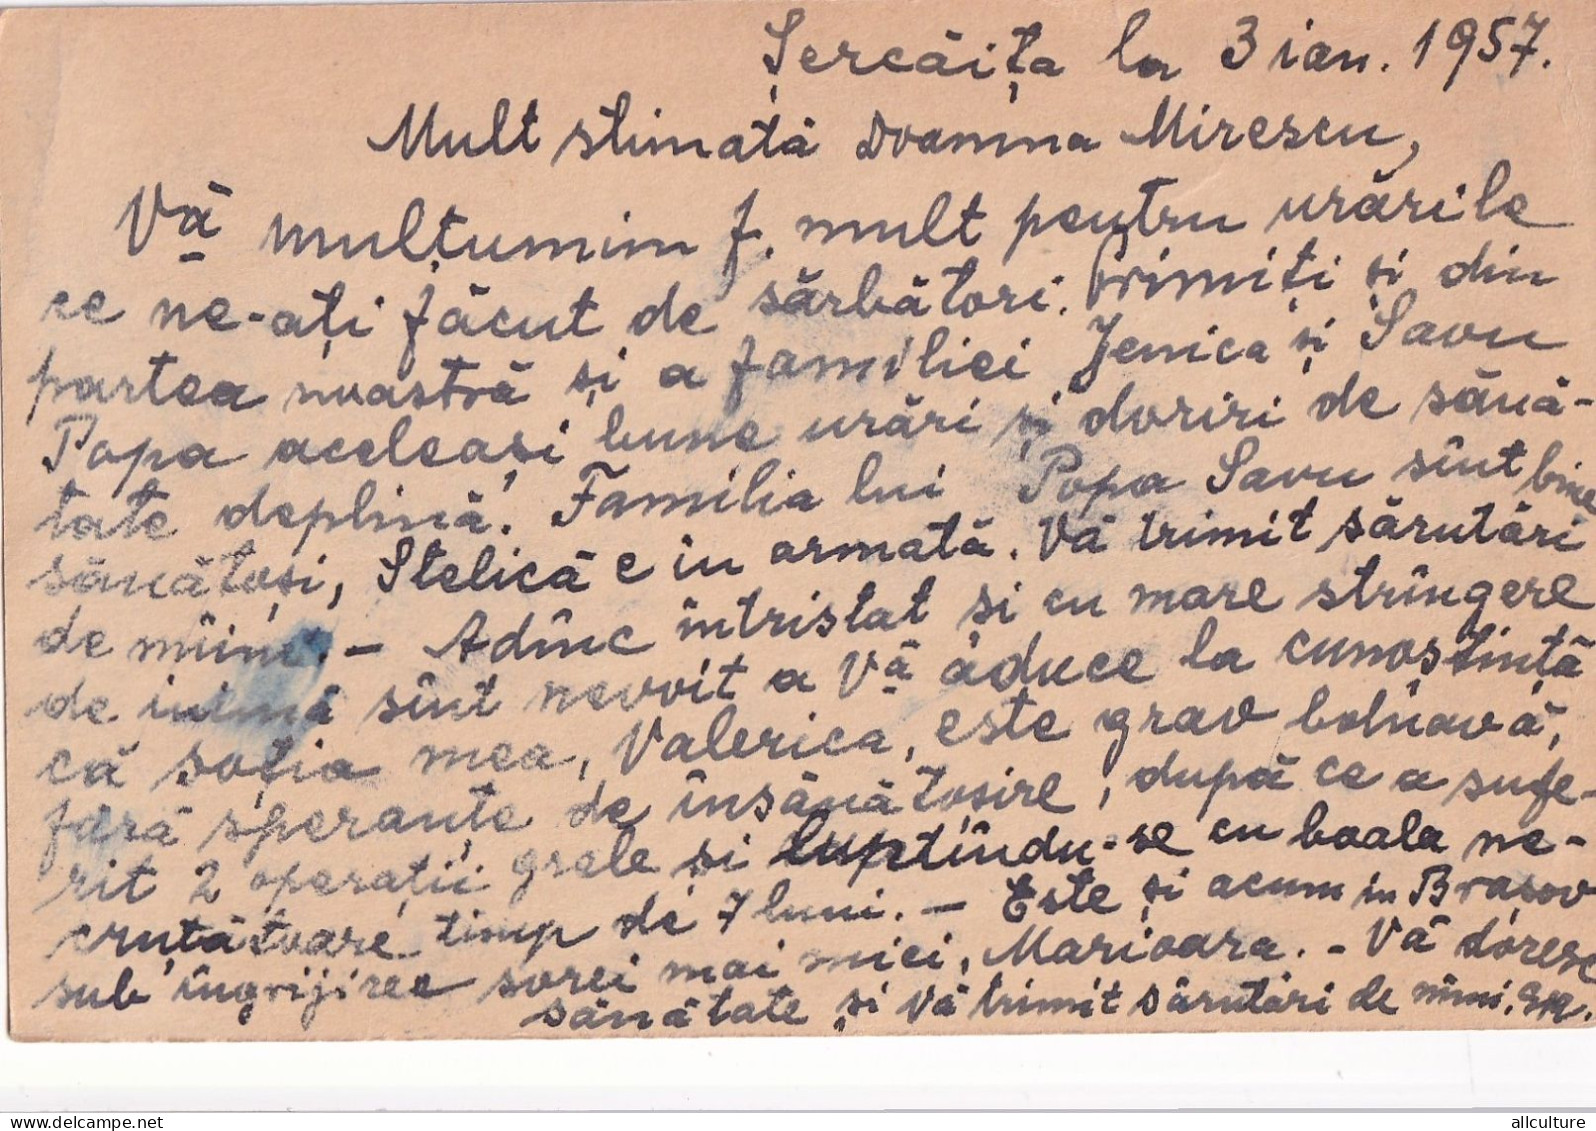 Șercăița la 3 ian. 1957.
Mult stimată Doamna Mirescu,
Vă mulțumim f. mult pentru urările
ce ne-ați făcut de sărbători. Primiți și din
partea noastră și a familiei Jenica și Savu
Popa aceleași bune urări și doriri de sănă-
tate deplină. Familia lui Popa Savu sînt bine
sănătoși, Stelică e în armată. Vă trimit sărutări
de mîini. - Adînc întristat și cu mare strîngere
de inimă sînt nevoit a Vă aduce la cunoștință
că soția mea, Valerica, este grav bolnavă,
fără speranțe de însănătoșire, după ce a sufe-
rit 2 operații grele și luptîndu-se cu boala ne-
cruțătoare timp de 7 luni. - Este și acum în Brașov
sub îngrijirea sorei mai mici, Marioara. - Vă doresc
sănătate și Vă trimit sărutări de mîini,
allculture.com
allculture